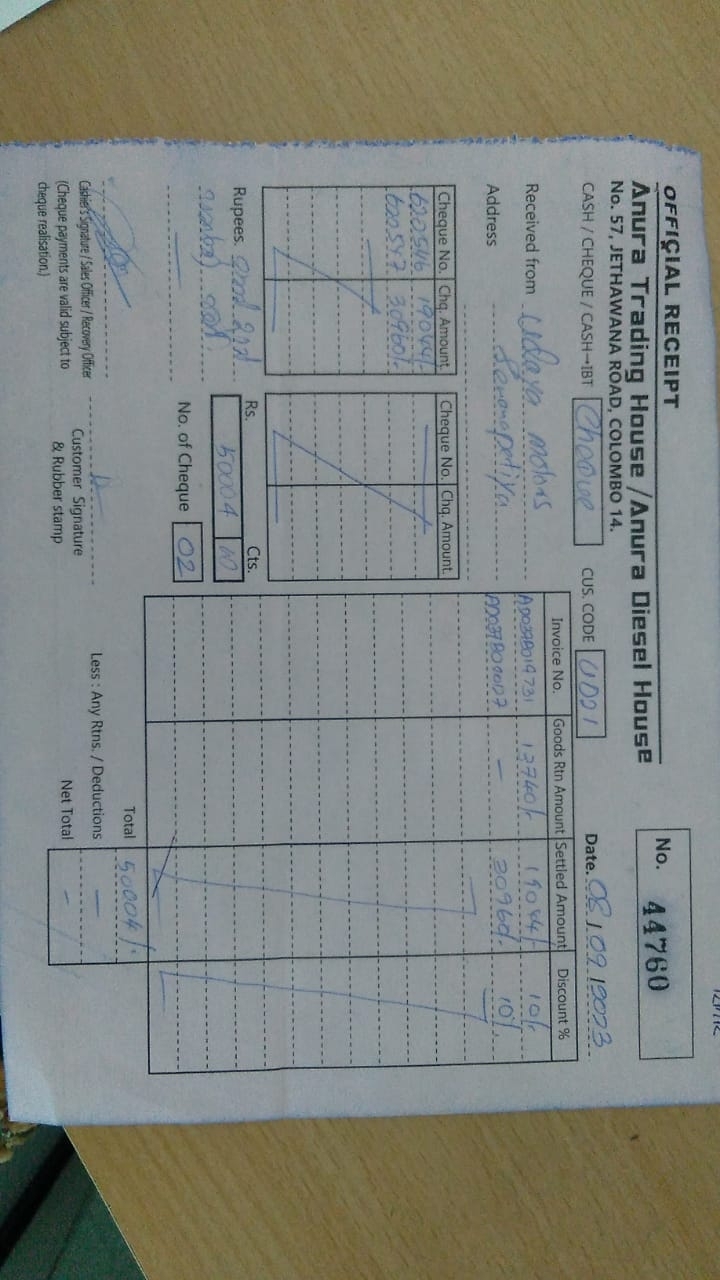 OFFICIAL RECEIPT
No. 44760
Anura Trading House / Anura Diesel House
No. 57, JETHAWANA ROAD, COLOMBO 14.
CASH / CHEQUE / CASH-IBT Cheque
CUS. CODE UD21
Date. 08/09/2023
Received from Udaya motors
Address
Cheque No. Chq. Amount.
620546 19044/-
620547 30960/-
Cheque No. Chq. Amount.
Invoice No. Goods Rtn Amount Settled Amount Discount %
AD037B019731 13740/- 19044/- 10%
30960/- 10%
Rupees.
Rs. Cts.
50004
No. of Cheque 02
Total 50004/-
Less : Any Rtns. / Deductions -
Net Total -
Cashier's Signature / Sales Officer / Recovery Officer
(Cheque payments are valid subject to
cheque realisation.)
Customer Signature
& Rubber stamp